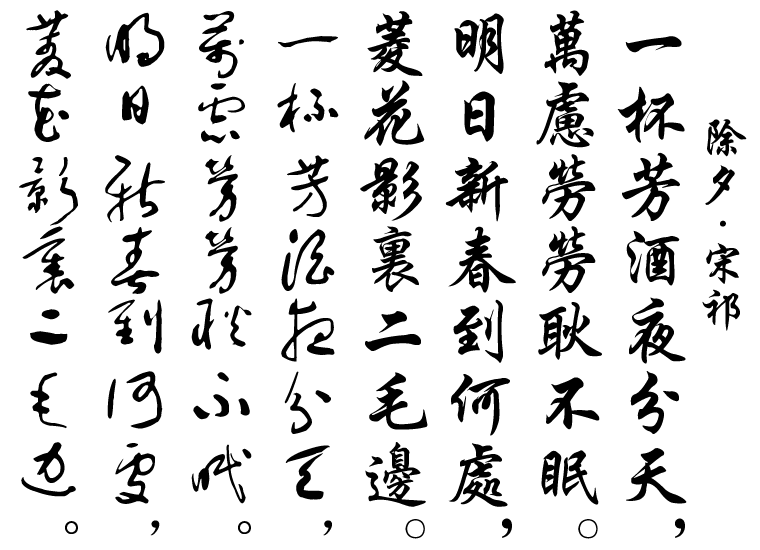 除夕·宋祁
一杯芳酒夜分天，
萬慮勞勞耿不眠。
明日新春到何處，
菱花影裏二毛邊。
一杯芳酒夜分天，
萬慮勞勞耿不眠。
明日新春到何處，
菱花影裏二毛邊。